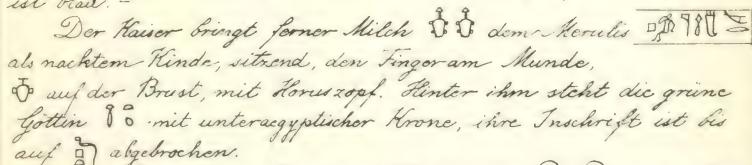 ist blau. –
Der Kaiser bringt ferner Milch dem Merulis
als nacktem Kinde, sitzend, den Finger am Munde,
auf der Brust, mit Horuszopf. Hinter ihm steht die grüne
Göttin mit unteraegyptischer Krone, ihre Inschrift ist bis
auf abgebrochen.